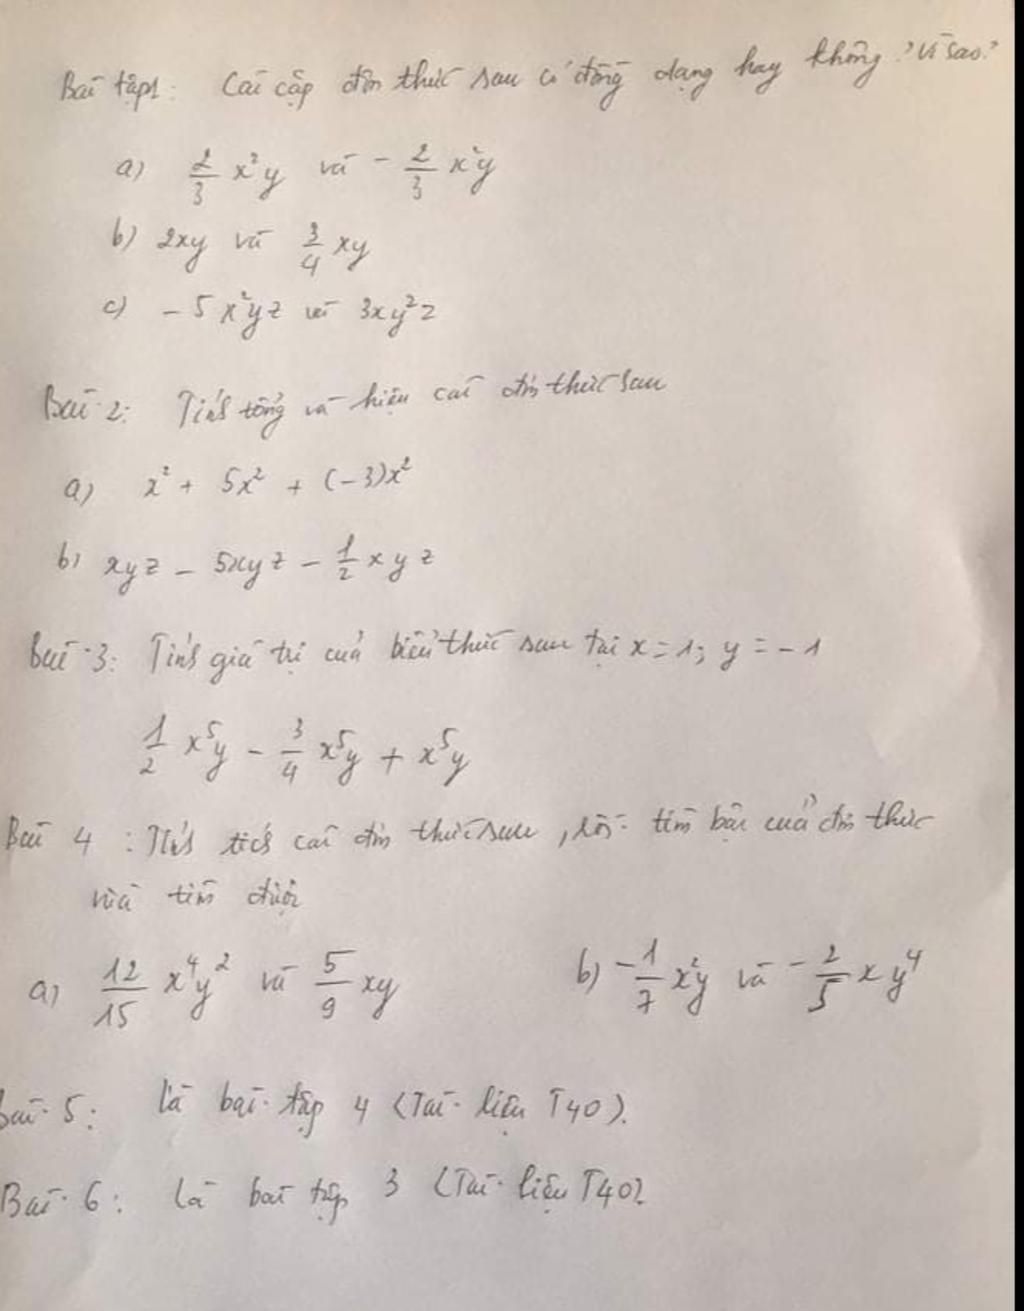 Bài tập1: Các cặp đơn thức sau có đồng dạng hay không? Vì sao?
a) 2/3 x²y và - 2/3 x²y
b) 2xy và 3/4 xy
c) - 5 x²yz và 3xy²z
Bài 2: Tính tổng và hiệu các đơn thức sau
a) x² + 5x² + (-3)x²
b) xyz - 5xyz - 1/2 xyz
Bài 3: Tính giá trị của biểu thức sau tại x = 1; y = - 1
1/2 x⁵y - 3/4 x⁵y + x⁵y
Bài 4 : Tính tích các đơn thức sau, rồi tìm bậc của đơn thức
mà tìm được
a) 12/15 x⁴y² và 5/9 xy b) - 1/7 x²y và - 2/5 x y⁴
Bài 5: là bài tập 4 (Tài liệu T40).
Bài 6: là bài tập 3 (Tài liệu T40)